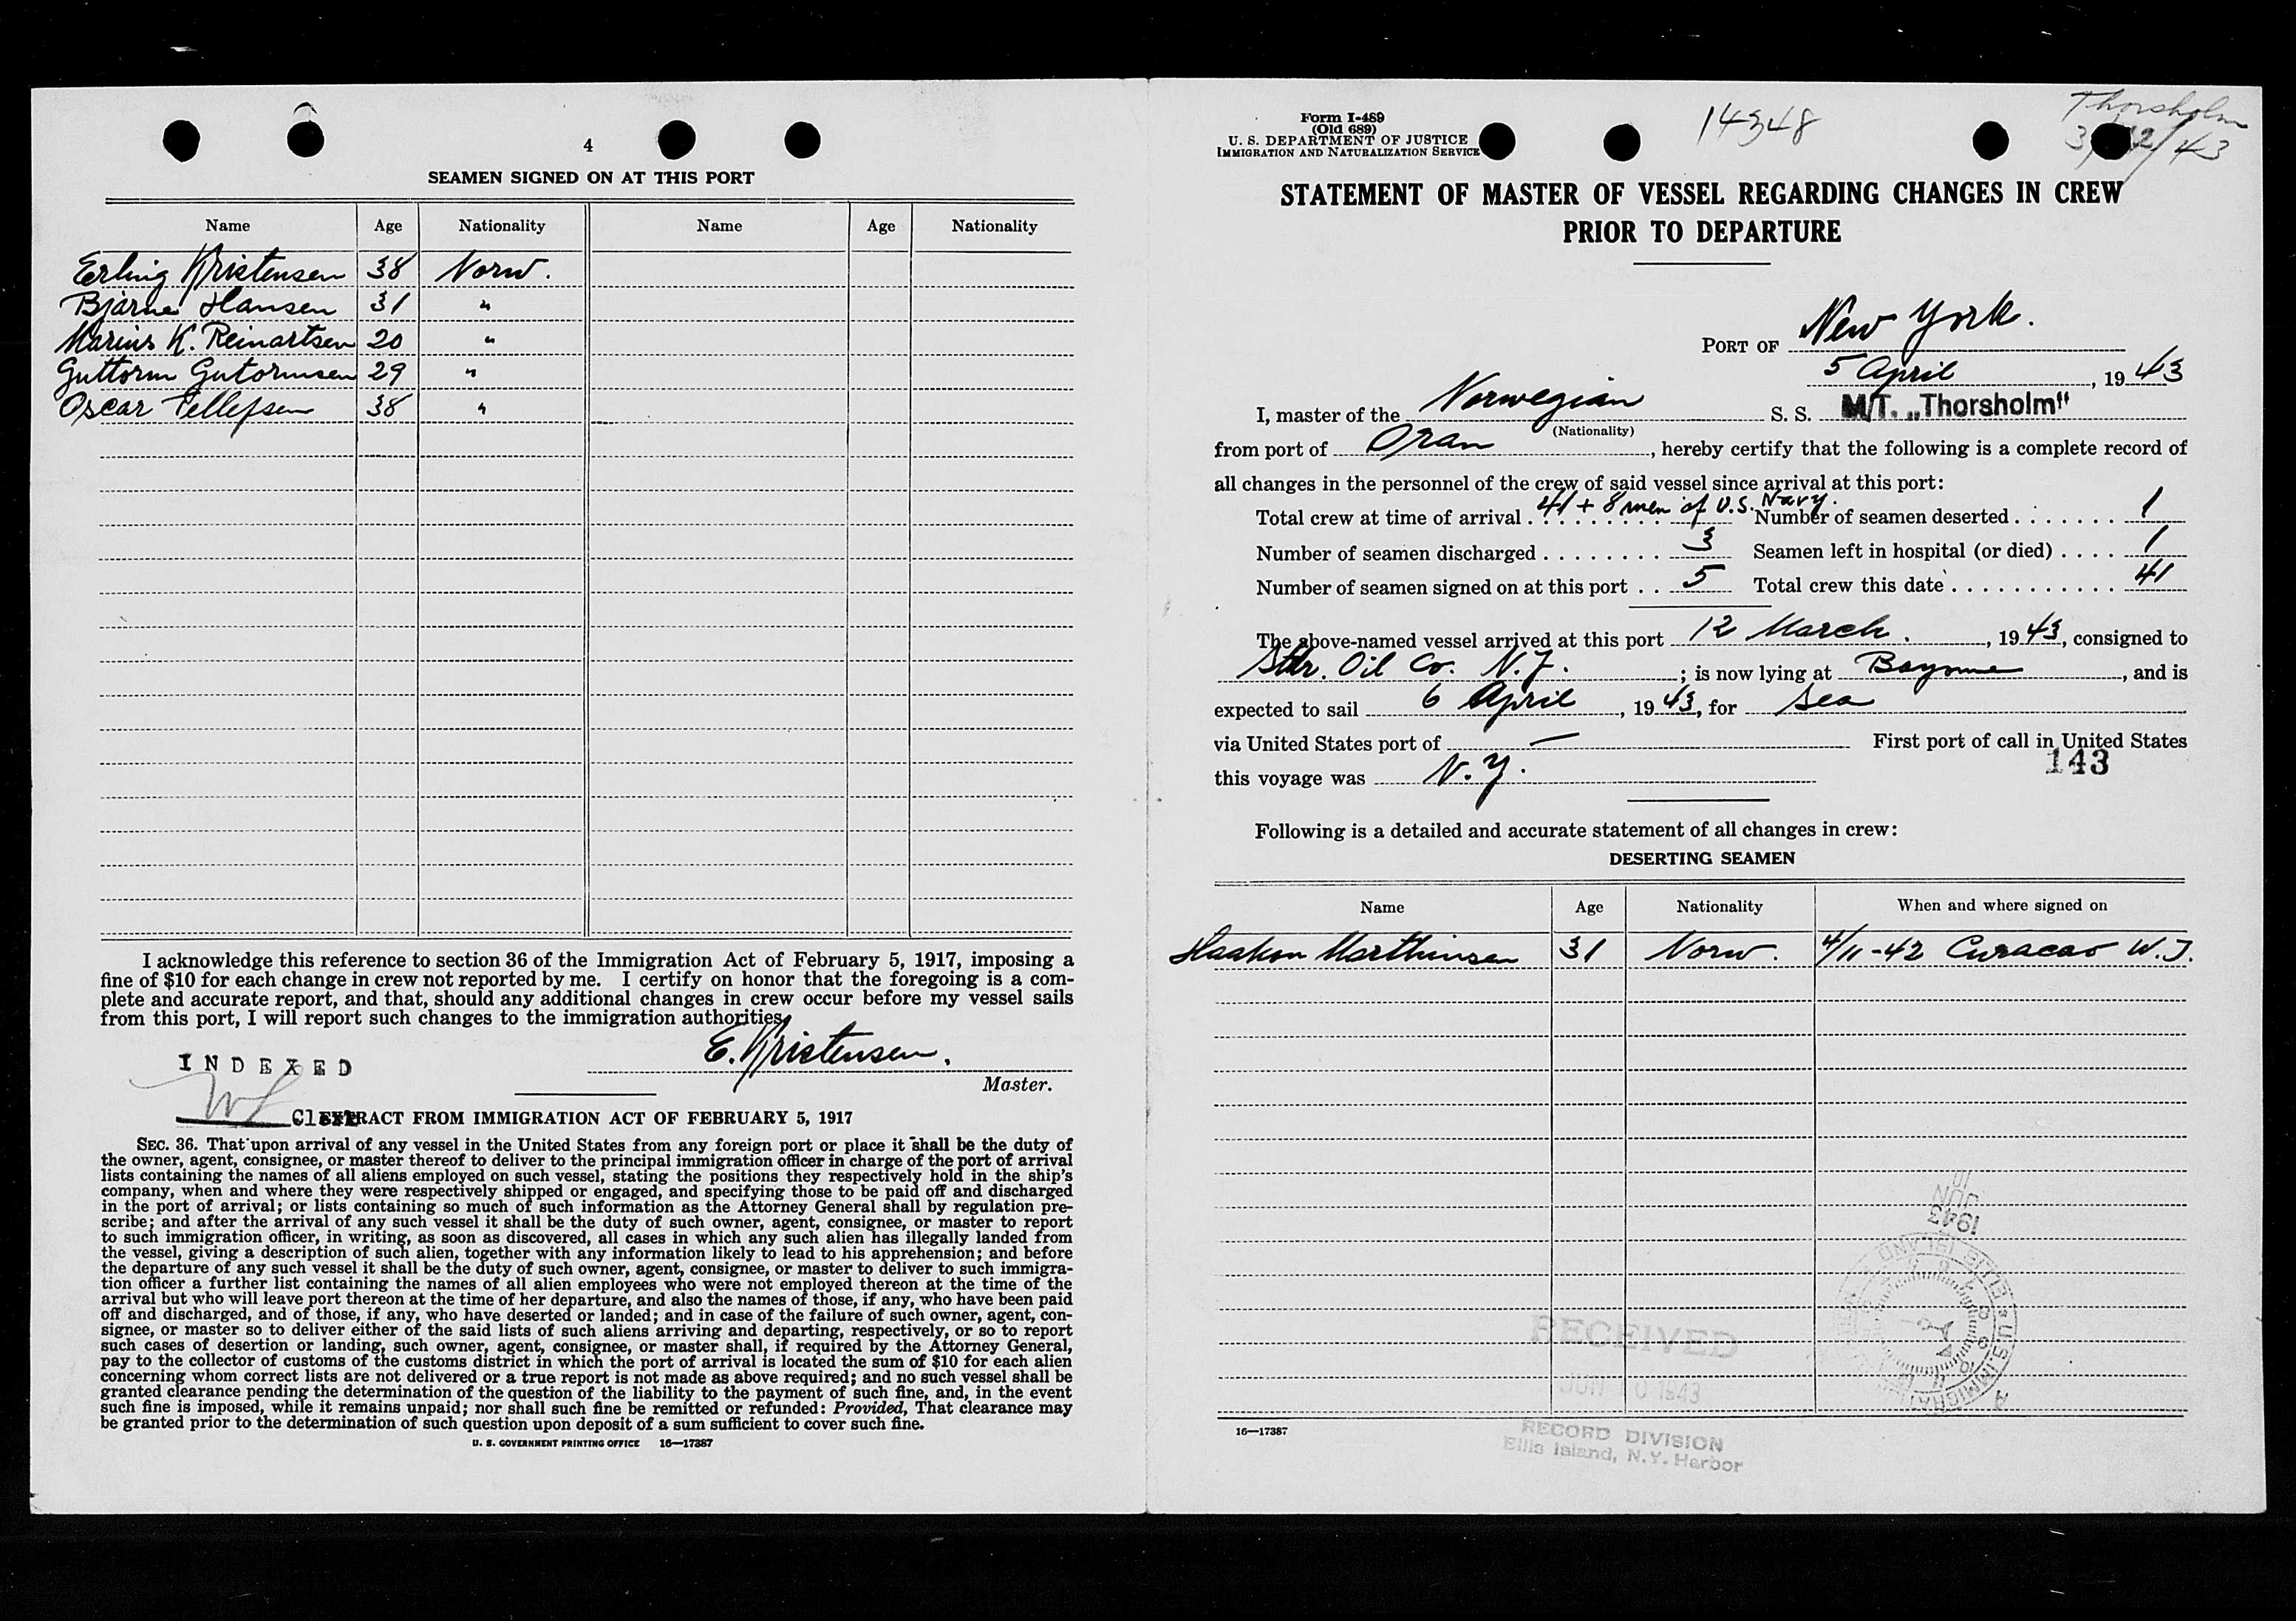 4
SEAMEN SIGNED ON AT THIS PORT
Name Age Nationality Name Age Nationality
Erling Kristensen 38 Norw.
Bjarne Hansen 31 "
Marius K. Reinartsen 20 "
Guttorm Gutormsen 29 "
Oscar Tellefsen 38 "
I acknowledge this reference to section 36 of the Immigration Act of February 5, 1917, imposing a
fine of $10 for each change in crew not reported by me. I certify on honor that the foregoing is a com-
plete and accurate report, and that, should any additional changes in crew occur before my vessel sails
from this port, I will report such changes to the immigration authorities.
E. Kristensen.
Master.
INDEXED
Clerk
EXTRACT FROM IMMIGRATION ACT OF FEBRUARY 5, 1917
SEC. 36. That upon arrival of any vessel in the United States from any foreign port or place it shall be the duty of
the owner, agent, consignee, or master thereof to deliver to the principal immigration officer in charge of the port of arrival
lists containing the names of all aliens employed on such vessel, stating the positions they respectively hold in the ship's
company, when and where they were respectively shipped or engaged, and specifying those to be paid off and discharged
in the port of arrival; or lists containing so much of such information as the Attorney General shall by regulation pre-
scribe; and after the arrival of any such vessel it shall be the duty of such owner, agent, consignee, or master to report
to such immigration officer, in writing, as soon as discovered, all cases in which any such alien has illegally landed from
the vessel, giving a description of such alien, together with any information likely to lead to his apprehension; and before
the departure of any such vessel it shall be the duty of such owner, agent, consignee, or master to deliver to such immigra-
tion officer a further list containing the names of all alien employees who were not employed thereon at the time of the
arrival but who will leave port thereon at the time of her departure, and also the names of those, if any, who have been paid
off and discharged, and of those, if any, who have deserted or landed; and in case of the failure of such owner, agent, con-
signee, or master so to deliver either of the said lists of such aliens arriving and departing, respectively, or so to report
such cases of desertion or landing, such owner, agent, consignee, or master shall, if required by the Attorney General,
pay to the collector of customs of the customs district in which the port of arrival is located the sum of $10 for each alien
concerning whom correct lists are not delivered or a true report is not made as above required; and no such vessel shall be
granted clearance pending the determination of the question of the liability to the payment of such fine, and, in the event
such fine is imposed, while it remains unpaid; nor shall such fine be remitted or refunded: Provided, That clearance may
be granted prior to the determination of such question upon deposit of a sum sufficient to cover such fine.
U. S. GOVERNMENT PRINTING OFFICE 16—17387
Form I-489
(Old 689)
U. S. DEPARTMENT OF JUSTICE
IMMIGRATION AND NATURALIZATION SERVICE
14348
Thorsholm
3/12/43
STATEMENT OF MASTER OF VESSEL REGARDING CHANGES IN CREW
PRIOR TO DEPARTURE
PORT OF New York.
5 April, 1943
I, master of the Norwegian S. S. M/T. „Thorsholm"
(Nationality)
from port of Oran, hereby certify that the following is a complete record of
all changes in the personnel of the crew of said vessel since arrival at this port:
Total crew at time of arrival 41 + 8 men of U.S. Navy. Number of seamen deserted 1
Number of seamen discharged 3 Seamen left in hospital (or died) 1
Number of seamen signed on at this port 5 Total crew this date 41
The above-named vessel arrived at this port 12 March., 1943, consigned to
Oil Co. N.J.; is now lying at Bayonne, and is
expected to sail 6 April, 1943, for Sea
via United States port of — First port of call in United States
this voyage was N.Y.
143
Following is a detailed and accurate statement of all changes in crew:
DESERTING SEAMEN
Name Age Nationality When and where signed on
Haakon Marthinsen 31 Norw. 4/11-42 Curacao W.I.
JUN 10
1943
RECEIVED
JUN 10 1943
RECORD DIVISION
Ellis Island, N.Y. Harbor
16—17387